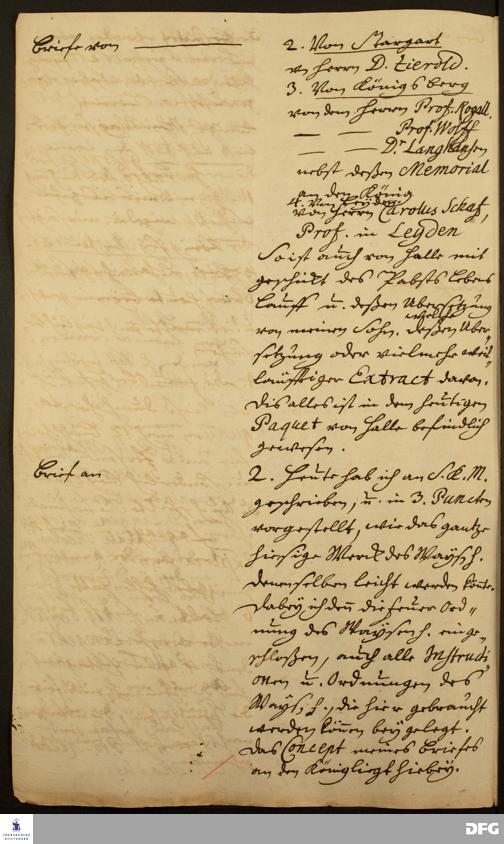 Briefe von
2. Von Stargart
von Herrn D. Zierold.
3. Von Königsberg
von dem Herrn Prof. Rogall,
— — Prof. Wolff
— — Dr Langhansen
nebst deßen Memorial
an den König
4. Von Leyden
von Herrn Carolus Schaf,
Prof. in Leyden
So ist auch von Halle mit
geschickt des Pabsts Lebens
Lauff u. deßen Ubersetzung
von meinen Sohn, welche
deßen Uber-
setzung oder vielmehr weit-
läufftiger Extract davon.
Dis alles ist in dem heutigen
Paquet von Halle befindlich
gewesen.
Brief an
2. Heute hab ich an S. K. M.
geschrieben, u. in 3. Puncten
vorgestellet, wie das gantze
hiesige Werck des Waysh.
denenselben leicht werden könte.
Dabey ich denn die Feuer Ord„
nung des Waysenh. einge„
schloßen, auch alle Instructi
onen u. Ordnungen des
Waysh., die hier gebraucht
werden können beygelegt.
das Concept meines Briefes
an den König liegt hiebey.
FRANCKESCHE
STIFTUNGEN
DFG